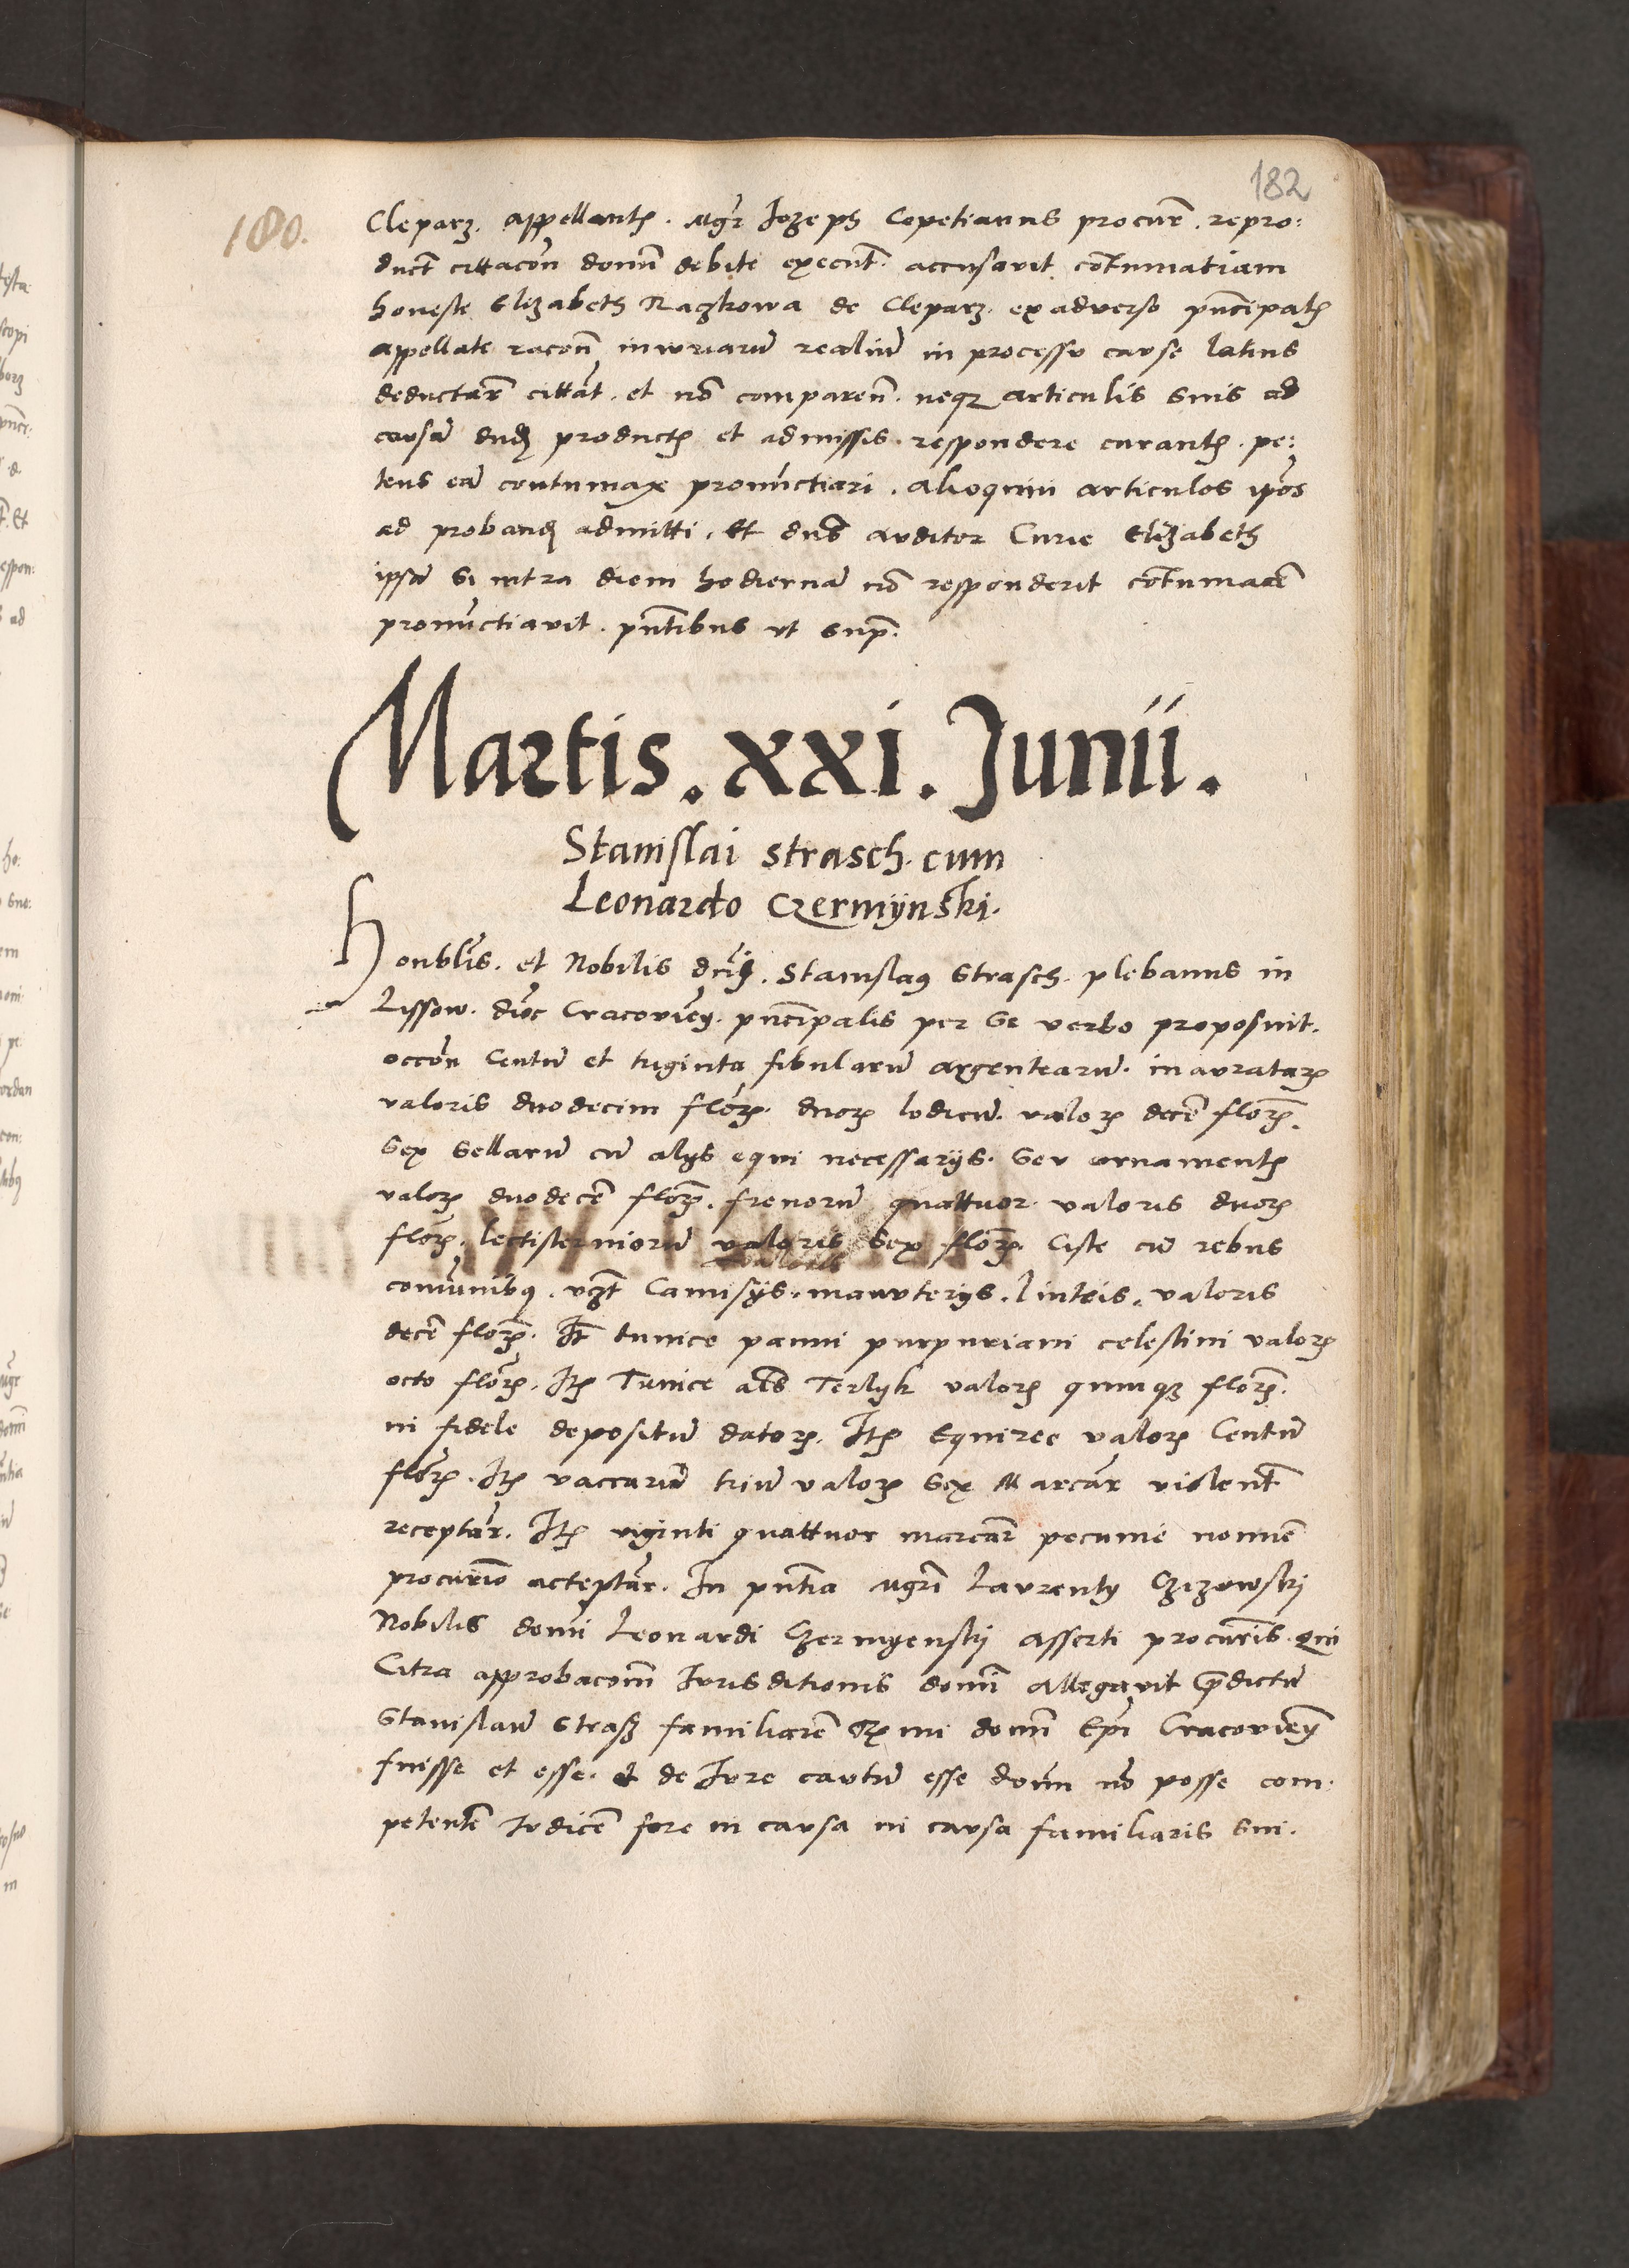 182
180.
Cleparz. appellantꝭ. Mgr̄ Jozeph Copetianus procurē. repro:
duct̄ cittacōn domī debite execut̄. accusavit cōtumatiam
honeste Elizabeth Raczkowa de Cleparz. ex adverso pn̄cipatꝭ
appellate racōn̄ iniuriarū realiū in processu cause latius
deductarꝫ cittat̄. et nō comparen̄. neqꝫ articulis suis ad
causā dudꝫ productꝭ et admissis. respondere curantꝭ. pe:
tens eā contumaxe pronūctiari. alioquin articulos ipōs
ad probandꝫ admitti. Et dn̄s auditor Curie Elizabeth
ipsā si intra diem hodiernā nō responderit cōtumacē
pronūctiavit. pn̄tibus ut supꝫ.
Martis. xxi. Junii.
Stanislai strasch. cum
Leonardo Czermÿnski.
Honblīs. et Nobilis dn̄s. Stanislaꝰ Strasch. plebanus in
Lissow. dioc̄ Cracovien̄. pn̄cipalis per se verbo proposuit.
occōn Centū et triginta fibularū argentearū. inauratarꝫ
valoris duodecim florꝫ. duorꝫ lodicū. valorꝫ decē florꝫ.
Sex sellarū cū alijs equi necessarijs. seu ornamentꝭ
valorꝫ duodecē florꝫ. frenorū quattuor valoris duorꝫ
florꝫ. lectisterniorū valoris sex florꝫ. Ciste cū rebus
comūnibꝰ. vꝫt Camisÿs. manuterijs. linteis. valoris
decē florꝫ. It̄ tunice panni purpuriani celestini valorꝫ
octo florꝫ. Itꝫ Tunice als̄ Terlyk valorꝫ quinqꝫ florꝫ.
in fidele depositū datorꝫ. Itꝫ Equiree valorꝫ Centū
florꝫ. Itꝫ vaccarū triū valorꝫ sex Marcar̄ violent̄
receptar̄. Itꝫ viginti quattuor marcar̄ pecunie nomīe
procurīo acceptar̄. In pn̄tia Mgrī Laurentÿ Czizowskj
Nobilis domī Leonardi Czermyenskj asserti procurīs. Qui
Citra approbacōm Jurisditionis domī allegavit p̄dictū
Stanislaū Strasz familiarē Rꝫmi domī Ep̄i Cracovien̄
fuisse et esse. et de Jure cautū esse domī nō posse com:
petentē Judicē fore in causa in causa familiaris sui.